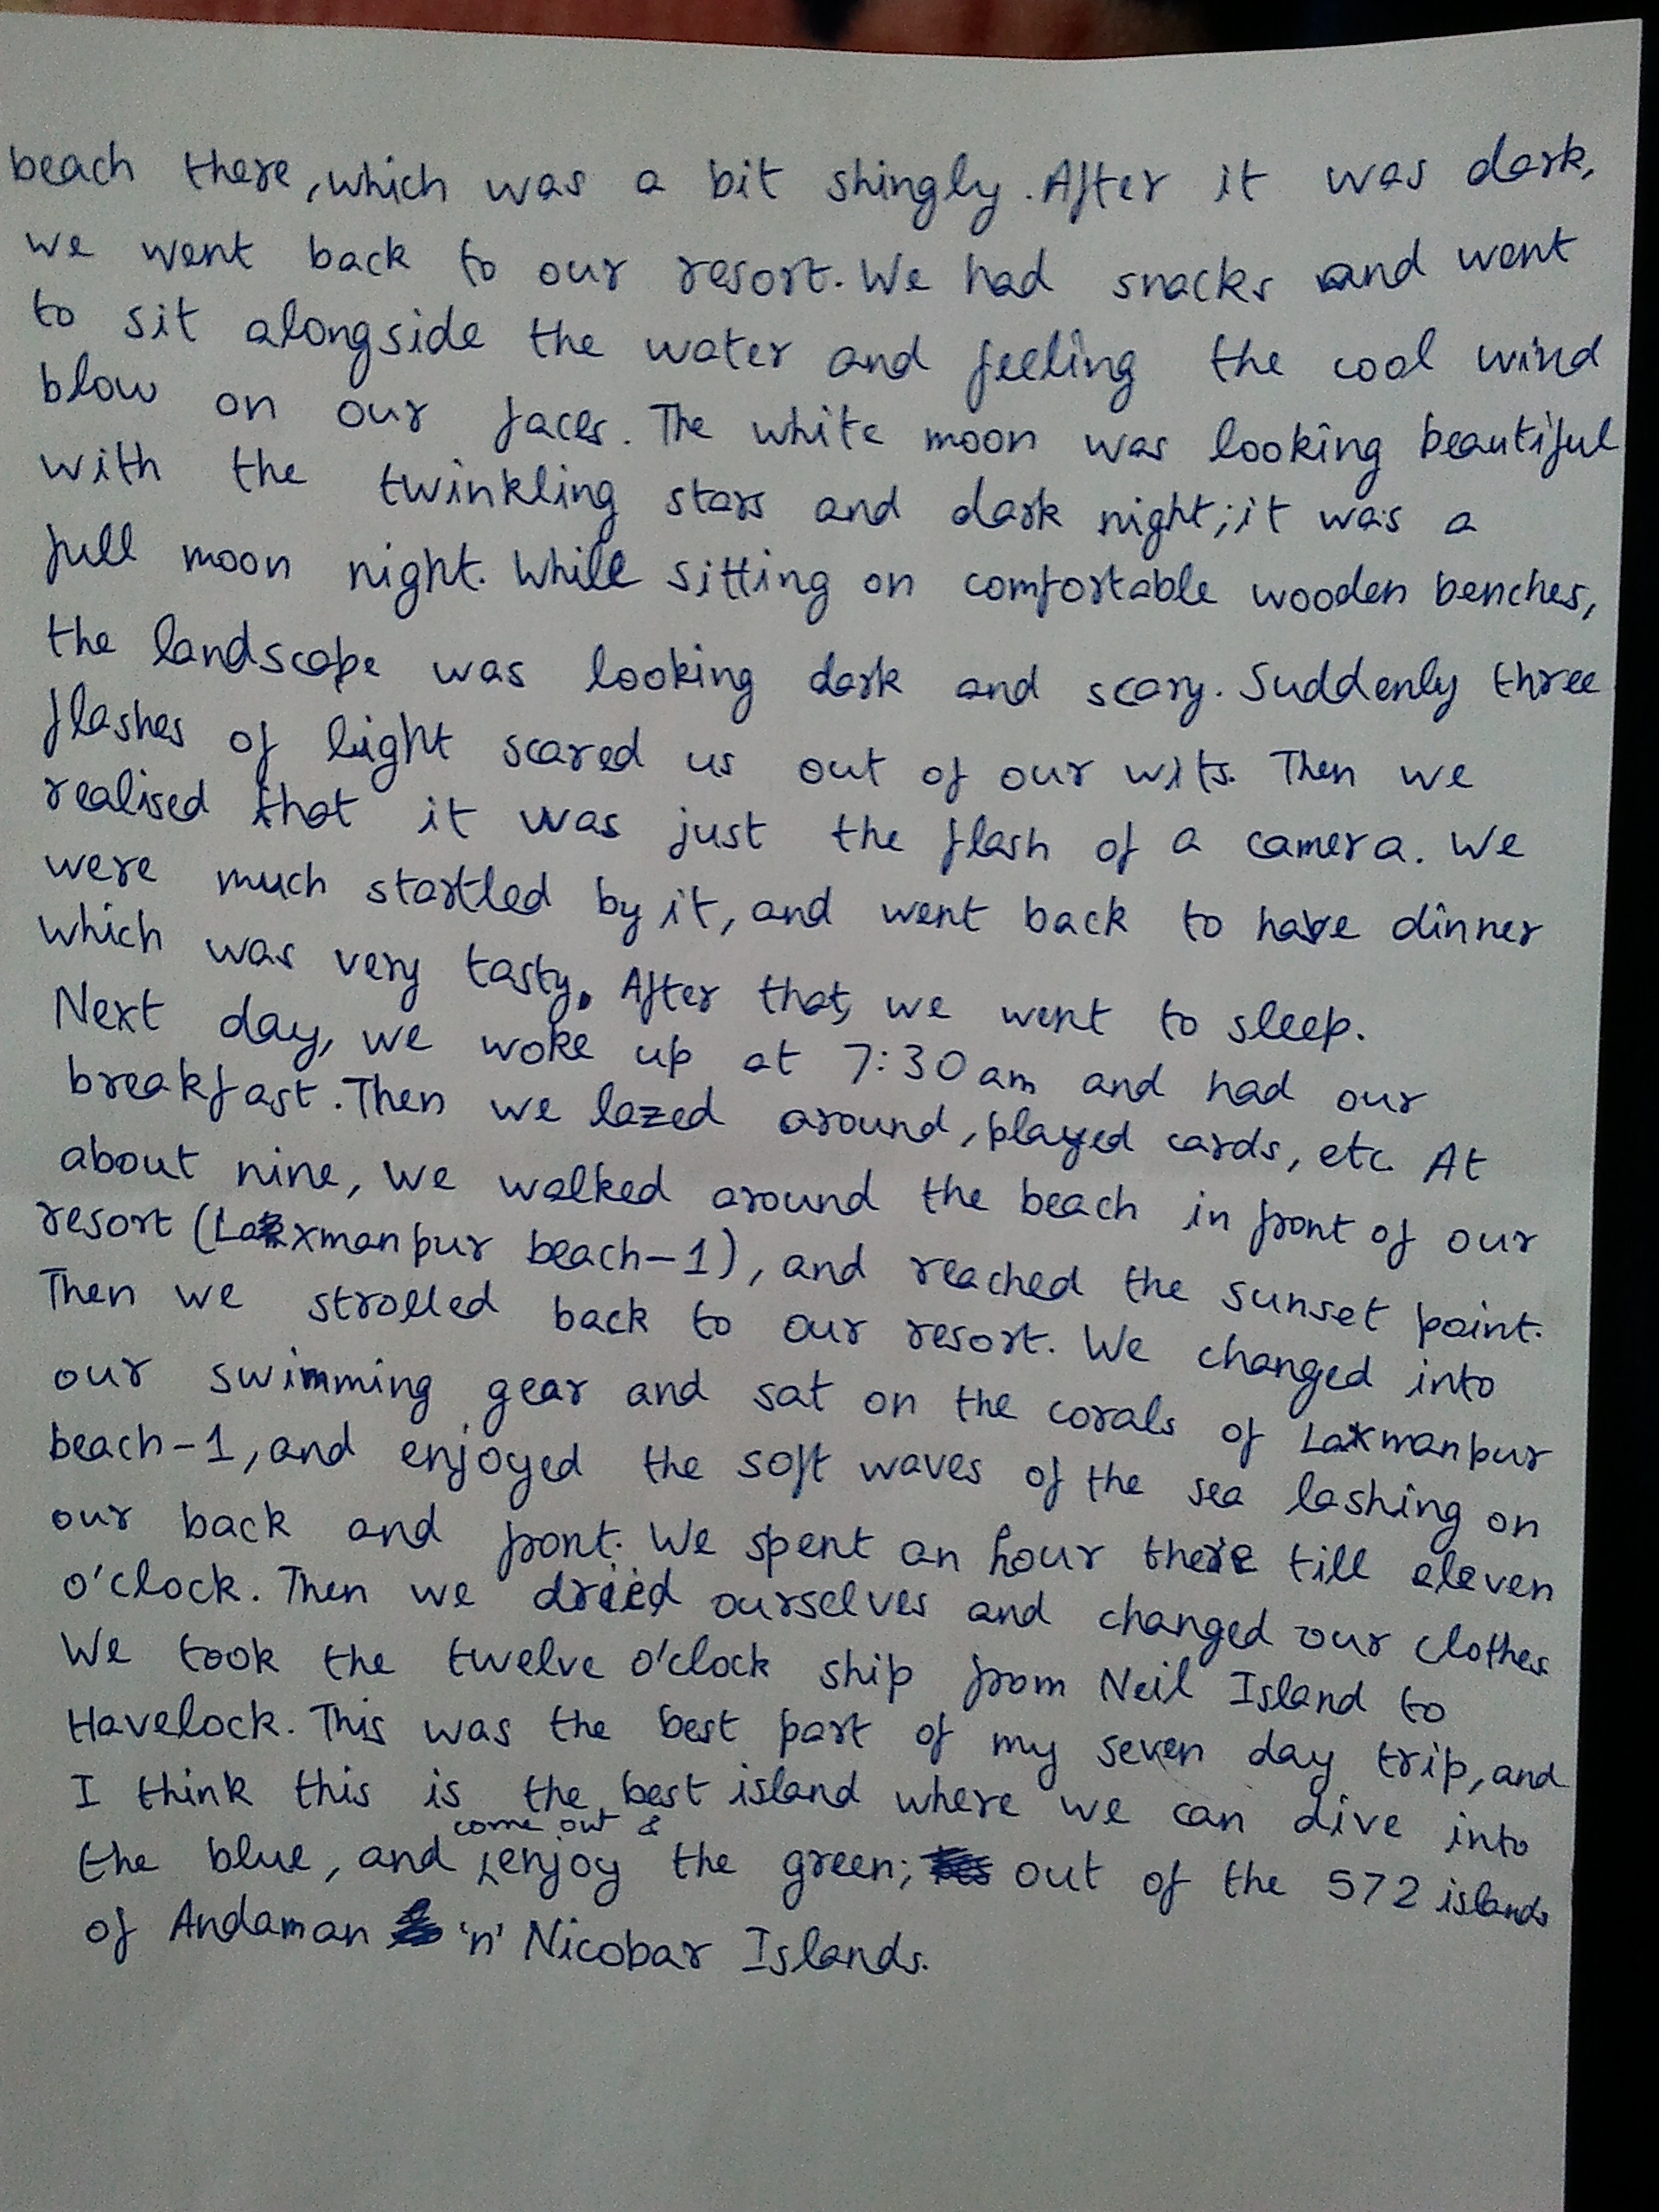 beach there, which was a bit shingly. After it was dark,
we went back to our resort. We had snacks and went
to sit alongside the water and feeling the cool wind
blow on our faces. The white moon was looking beautiful
with the twinkling stars and dark night; it was a
full moon night. While sitting on comfortable wooden benches,
the landscape was looking dark and scary. Suddenly three
flashes of light scared us out of our wits. Then we
realised that it was just the flash of a camera. We
were much startled by it, and went back to have dinner
which was very tasty. After that, we went to sleep.
Next day, we woke up at 7:30 am and had our
breakfast. Then we lazed around, played cards, etc. At
about nine, we walked around the beach in front of our
resort (Laxmanpur beach-1), and reached the sunset point.
Then we strolled back to our resort. We changed into
our swimming gear and sat on the corals of Laxmanpur
beach-1, and enjoyed the soft waves of the sea lashing on
our back and front. We spent an hour there till eleven
o'clock. Then we dried ourselves and changed our clothes
We took the twelve o'clock ship from Neil Island to
Havelock. This was the best part of my seven day trip, and
I think this is the best island where we can dive into
the blue, and come out & enjoy the green; out of the 572 islands
of Andaman 'n' Nicobar Islands.